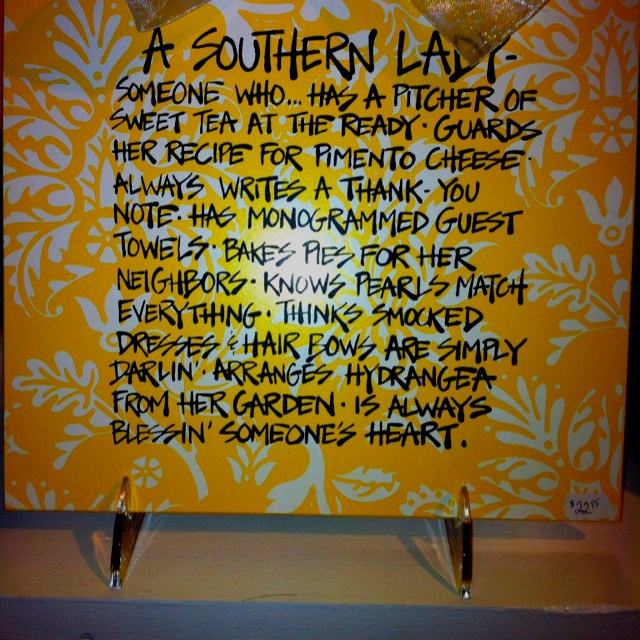 A SOUTHERN LADY-
SOMEONE WHO... HAS A PITCHER OF
SWEET TEA AT THE READY · GUARDS
HER RECIPE FOR PIMENTO CHEESE ·
ALWAYS WRITES A THANK-YOU
NOTE · HAS MONOGRAMMED GUEST
TOWELS · BAKES PIES FOR HER
NEIGHBORS · KNOWS PEARLS MATCH
EVERYTHING · THINKS SMOCKED
DRESSES & HAIR BOWS ARE SIMPLY
DARLIN' · ARRANGES HYDRANGEA
FROM HER GARDEN · IS ALWAYS
BLESSIN' SOMEONE'S HEART.
$22.95